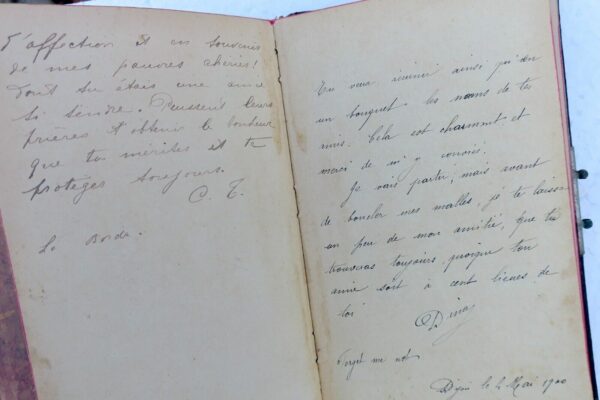 d'affection et en souvenir
de mes pauvres chéries!
dont tu étais une amie
si tendre. Puissent leurs
prières t'obtenir le bonheur
que tu mérites et te
protéger toujours.
C. T.
La Borde.
Tu veux réunir ainsi qu'en
un bouquet les noms de tes
amis. Cela est charmant et
merci de m'y convier.
Je vais partir, mais avant
de boucler mes malles, je te laisse
un peu de mon amitié, que tu
trouveras toujours quoique ton
amie soit à cent lieues de
toi
Forget me not
Dijon le 4 Mai 1900